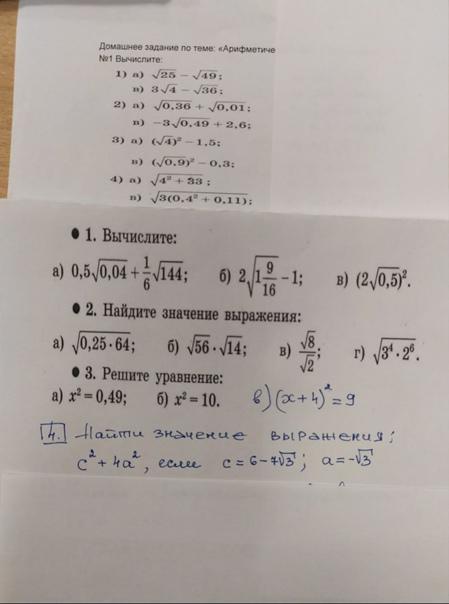 Домашнее задание по теме: «Арифметиче
№1 Вычислите:
1) а) √25 − √49;
в) 3√4 − √36;
2) а) √0,36 + √0,01;
в) −3√0,49 + 2,6;
3) а) (√4)² − 1,5;
в) (√0,9)² − 0,3;
4) а) √(4² + 33) ;
в) √(3(0,4² + 0,11);
● 1. Вычислите:
а) 0,5√0,04 + 1/6 √144; б) 2√(1 9/16) − 1; в) (2√0,5)².
● 2. Найдите значение выражения:
а) √(0,25 · 64); б) √56 · √14; в) √8/√2; г) √(3⁴ · 2⁶).
● 3. Решите уравнение:
а) x² = 0,49; б) x² = 10. в) (x+4)² = 9
4. Найти значение выражения:
c² + 4a², если c = 6 − 7√3; a = −√3